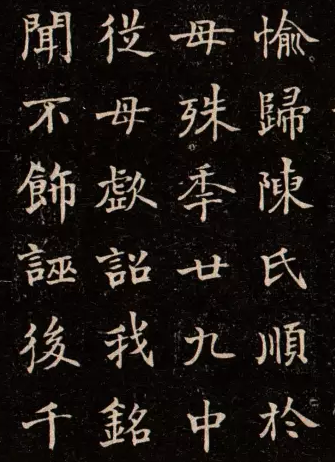 愉歸陳氏順於
母殊季廿九中
從母歔詔我銘
聞不飾誣後千